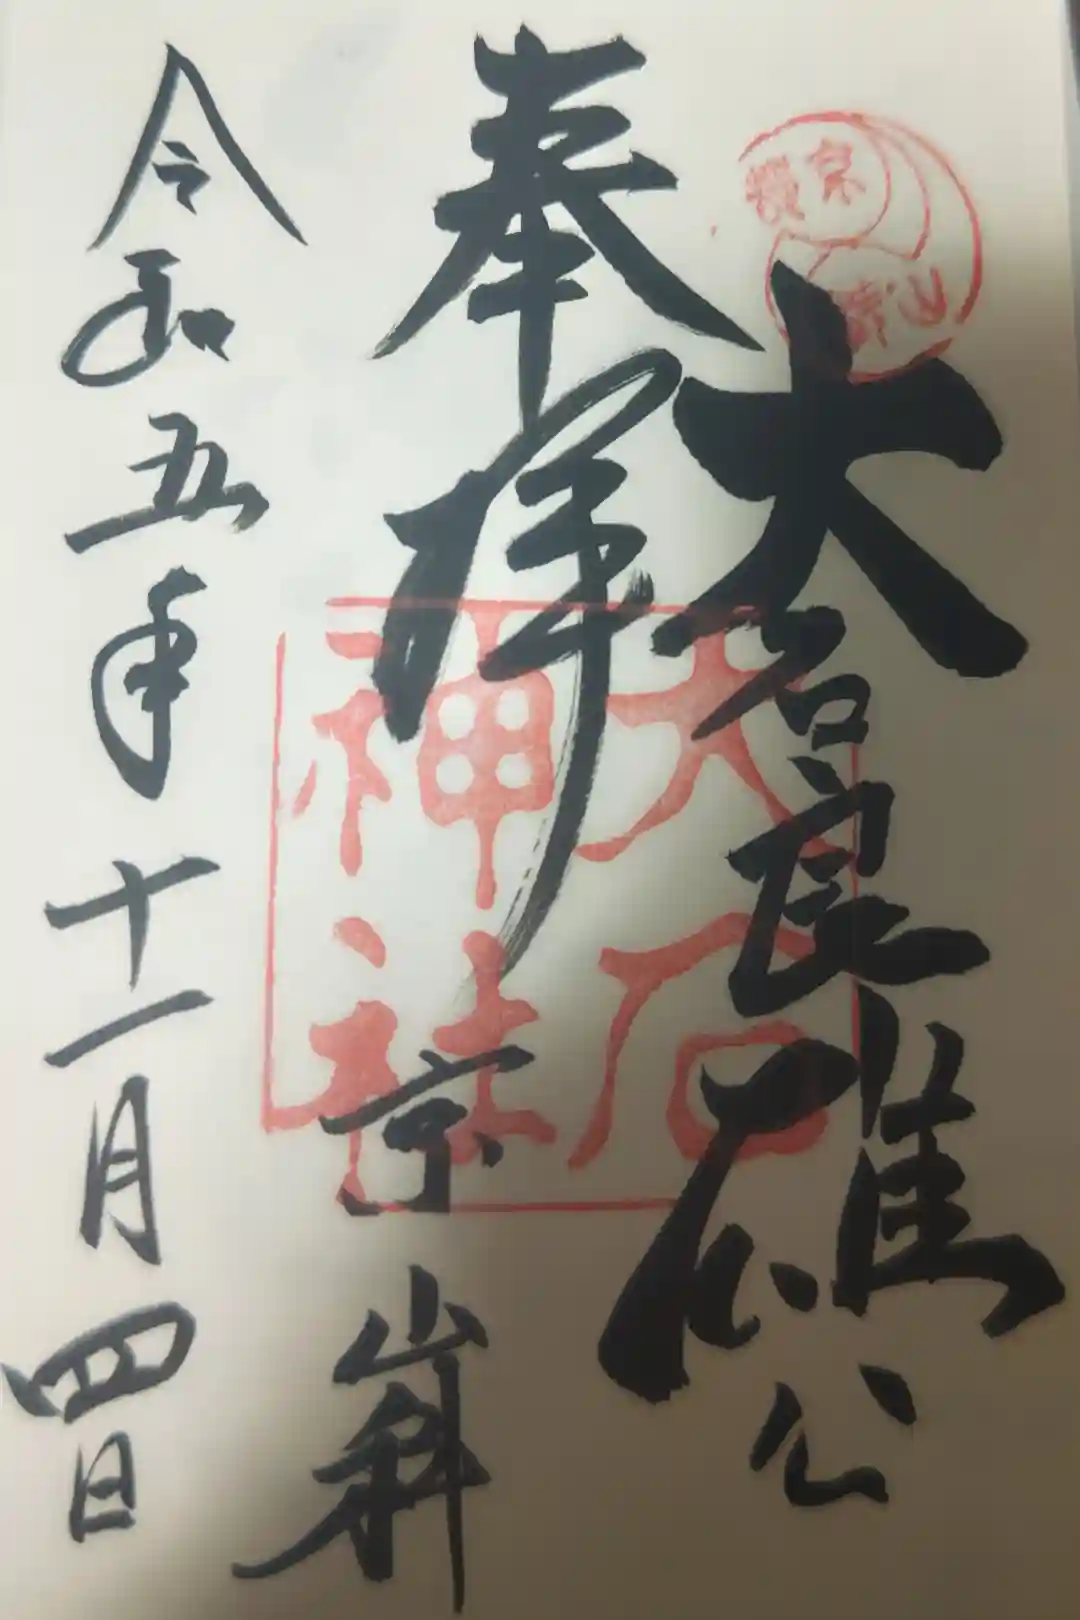 大石良雄公
奉拝
京山科
令和五年十一月四日
大石
神社